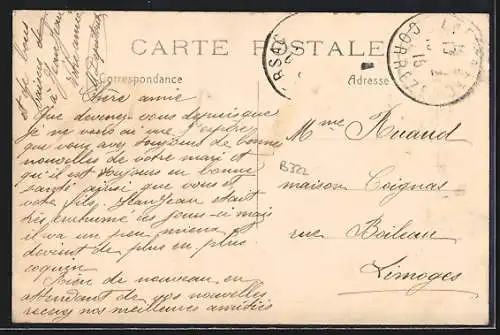 CARTE POSTALE
Correspondance
Adresse
Chère amie
Que devenez-vous depuis que
je ne vous ai vue. J'espère
que vous avez toujours de bonne
nouvelles de votre mari et
qu'il est toujours en bonne
santé ainsi que vous et
votre fils. Jean était
très enrhumé ces jours-ci mais
il va un peu mieux et
devient de plus en plus
coquin.
Rien de nouveau en
attendant de vos nouvelles
recevez nos meilleures amitiés
et de vous
à
Mme Ruaud
maison Coignas
rue Boileau
Limoges
B322
CORRÈZE